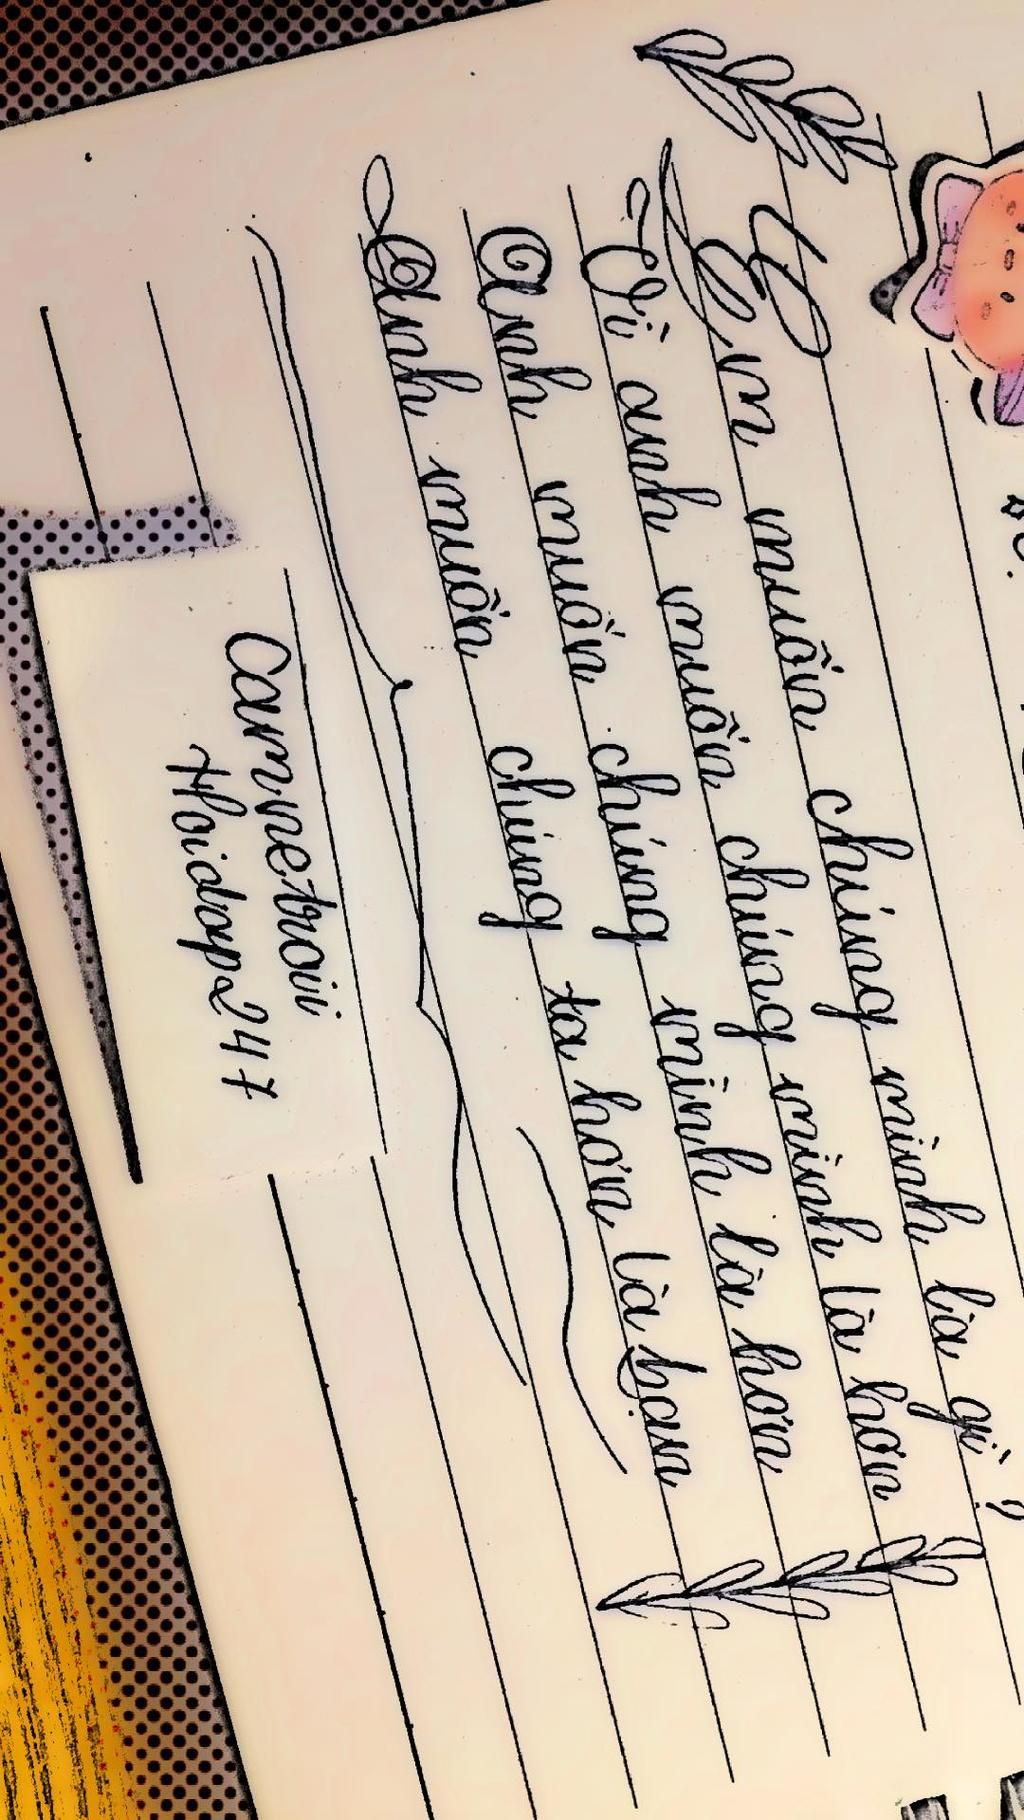 Em muốn chúng mình là gì?
Vì anh muốn chúng mình là hơn
Anh muốn chúng mình là hơn
Anh muốn chúng ta hơn là bạn
Camnetroii
Hoidap247